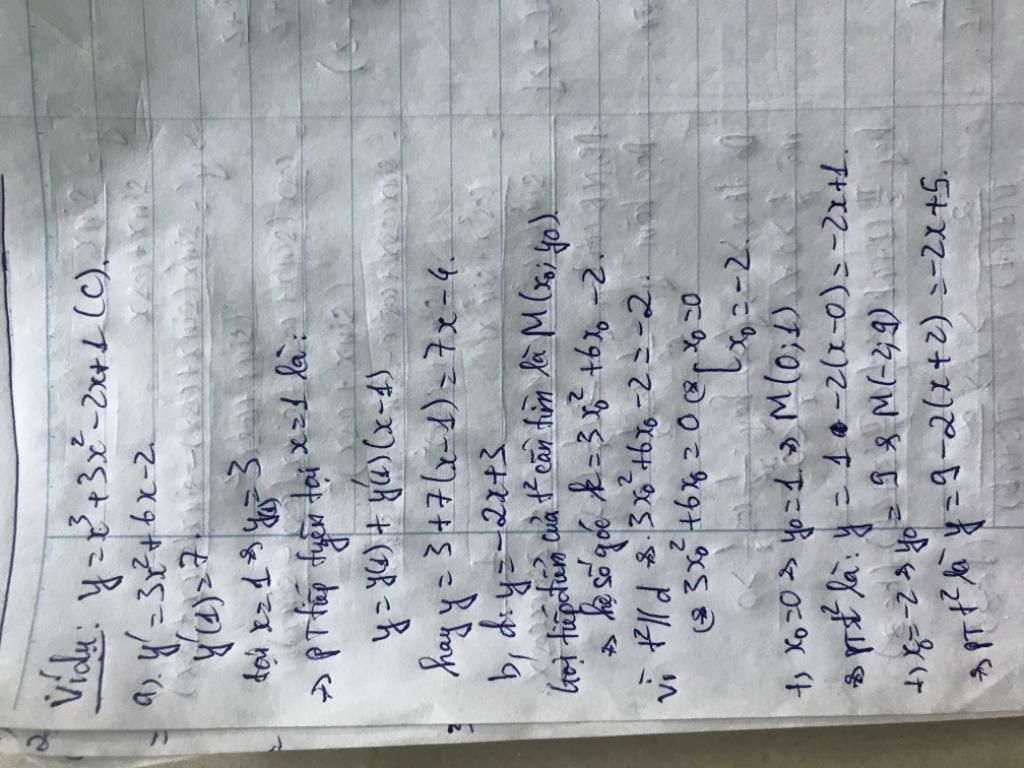 Ví dụ: y = x³ + 3x² - 2x + 1 (C).
a). y' = 3x² + 6x - 2
y'(1) = 7.
tại x = 1 ⇒ y(1) = 3
→ PT tiếp tuyến tại x = 1 là:
y = y(1) + y'(1)(x - 1)
hay y = 3 + 7(x - 1) = 7x - 4.
b, d: y = -2x + 3
Gọi tiếp điểm của t² cần tìm là M(x₀; y₀).
⇒ hệ số góc k = 3x₀² + 6x₀ - 2.
Vì t² // d ⇒ 3x₀² + 6x₀ - 2 = -2.
⇔ 3x₀² + 6x₀ = 0 ⇔ [ x₀ = 0
x₀ = -2.
+) x₀ = 0 ⇒ y₀ = 1 ⇒ M(0; 1)
⇒ PT t² là: y = 1 - 2(x - 0) = -2x + 1.
+) x₀ = -2 ⇒ y₀ = 9 ⇒ M(-2; 9)
⇒ PT t² là y = 9 - 2(x + 2) = -2x + 5.